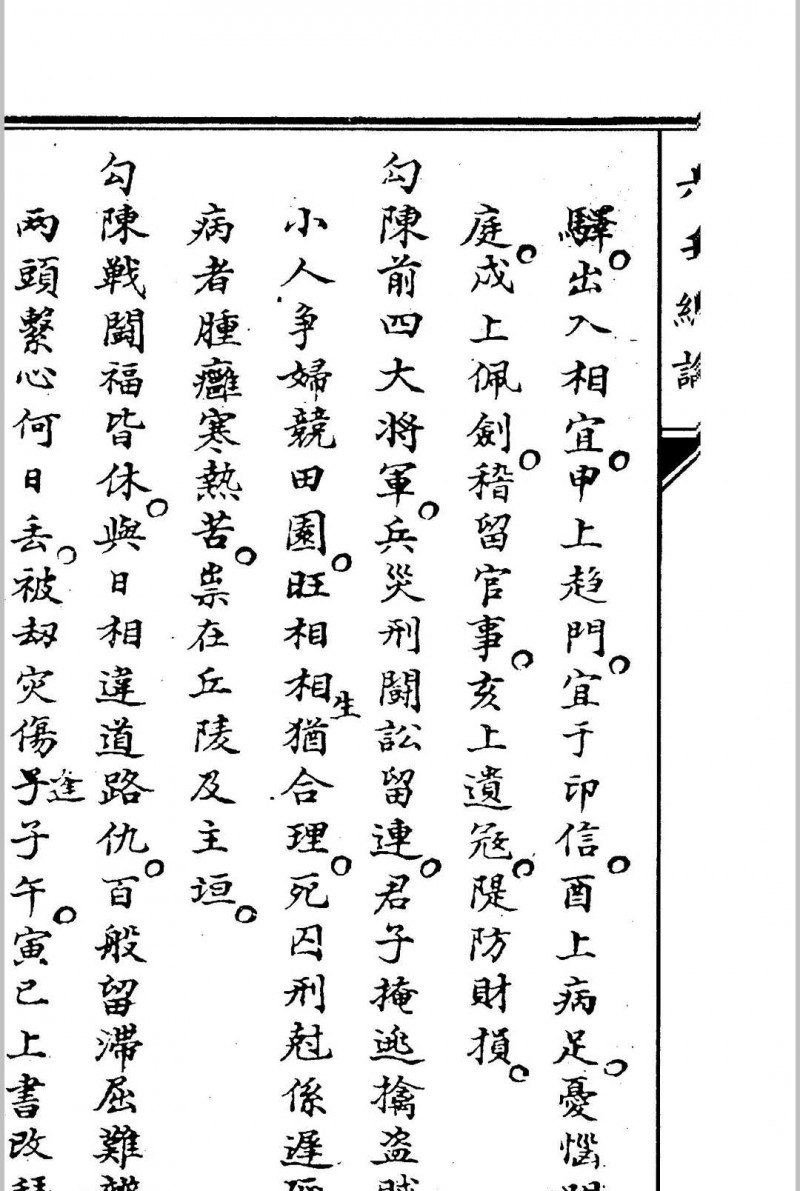 六壬總論
驛。出入相宜。申上趋門。宜于印信。酉上病足。憂惱
庭。戌上佩劍。稽留官事。亥上遺冠。隄防財損。
勾陳前四大将軍。兵災刑鬪訟留連。君子掩逃擒盗賊
小人争婦競田園。旺相相生猶合理。死囚刑尅係遲
病者腫癰寒熱苦。祟在丘陵及主垣。
勾陳戦鬪福皆休。與日相違道路仇。百般留滯屈難
两頭繫心何日丢。被刼灾傷逢子午。寅巳上書改